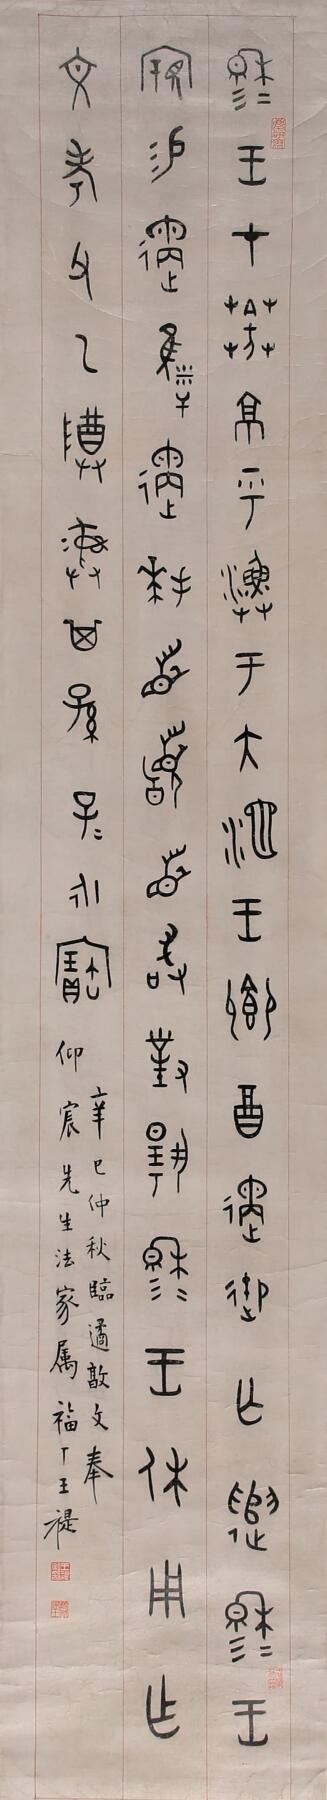 穆穆王才京乎漁于大池王鄉酉遹御亡遣穆穆王
寴易遹遹拜首稽首敢對揚穆穆王休用乍
文考父乙尊彝其孫孫子子永寶
辛巳仲秋臨遹敦文奉
仰宸先生法家属福厂王禔